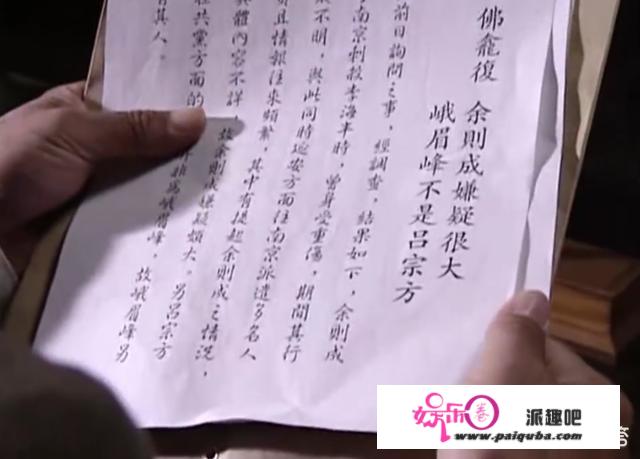 佛龕復 余則成嫌疑很大
峨眉峰不是呂宗方
前日詢問之事，經調查，結果如下，余則成
南京刺殺李海丰時，曾身受重傷，期間其行
不明，與此同時延安方面往南京派遣多名人
且情報往來頻繁，其中有提起余則成之情況，
具體內容不詳，故余則成嫌疑頗大。另呂宗方
在共黨方面的 非為峨眉峰，故峨眉峰另
有其人。
娱乐圈 派趣吧
www.paiquba.com